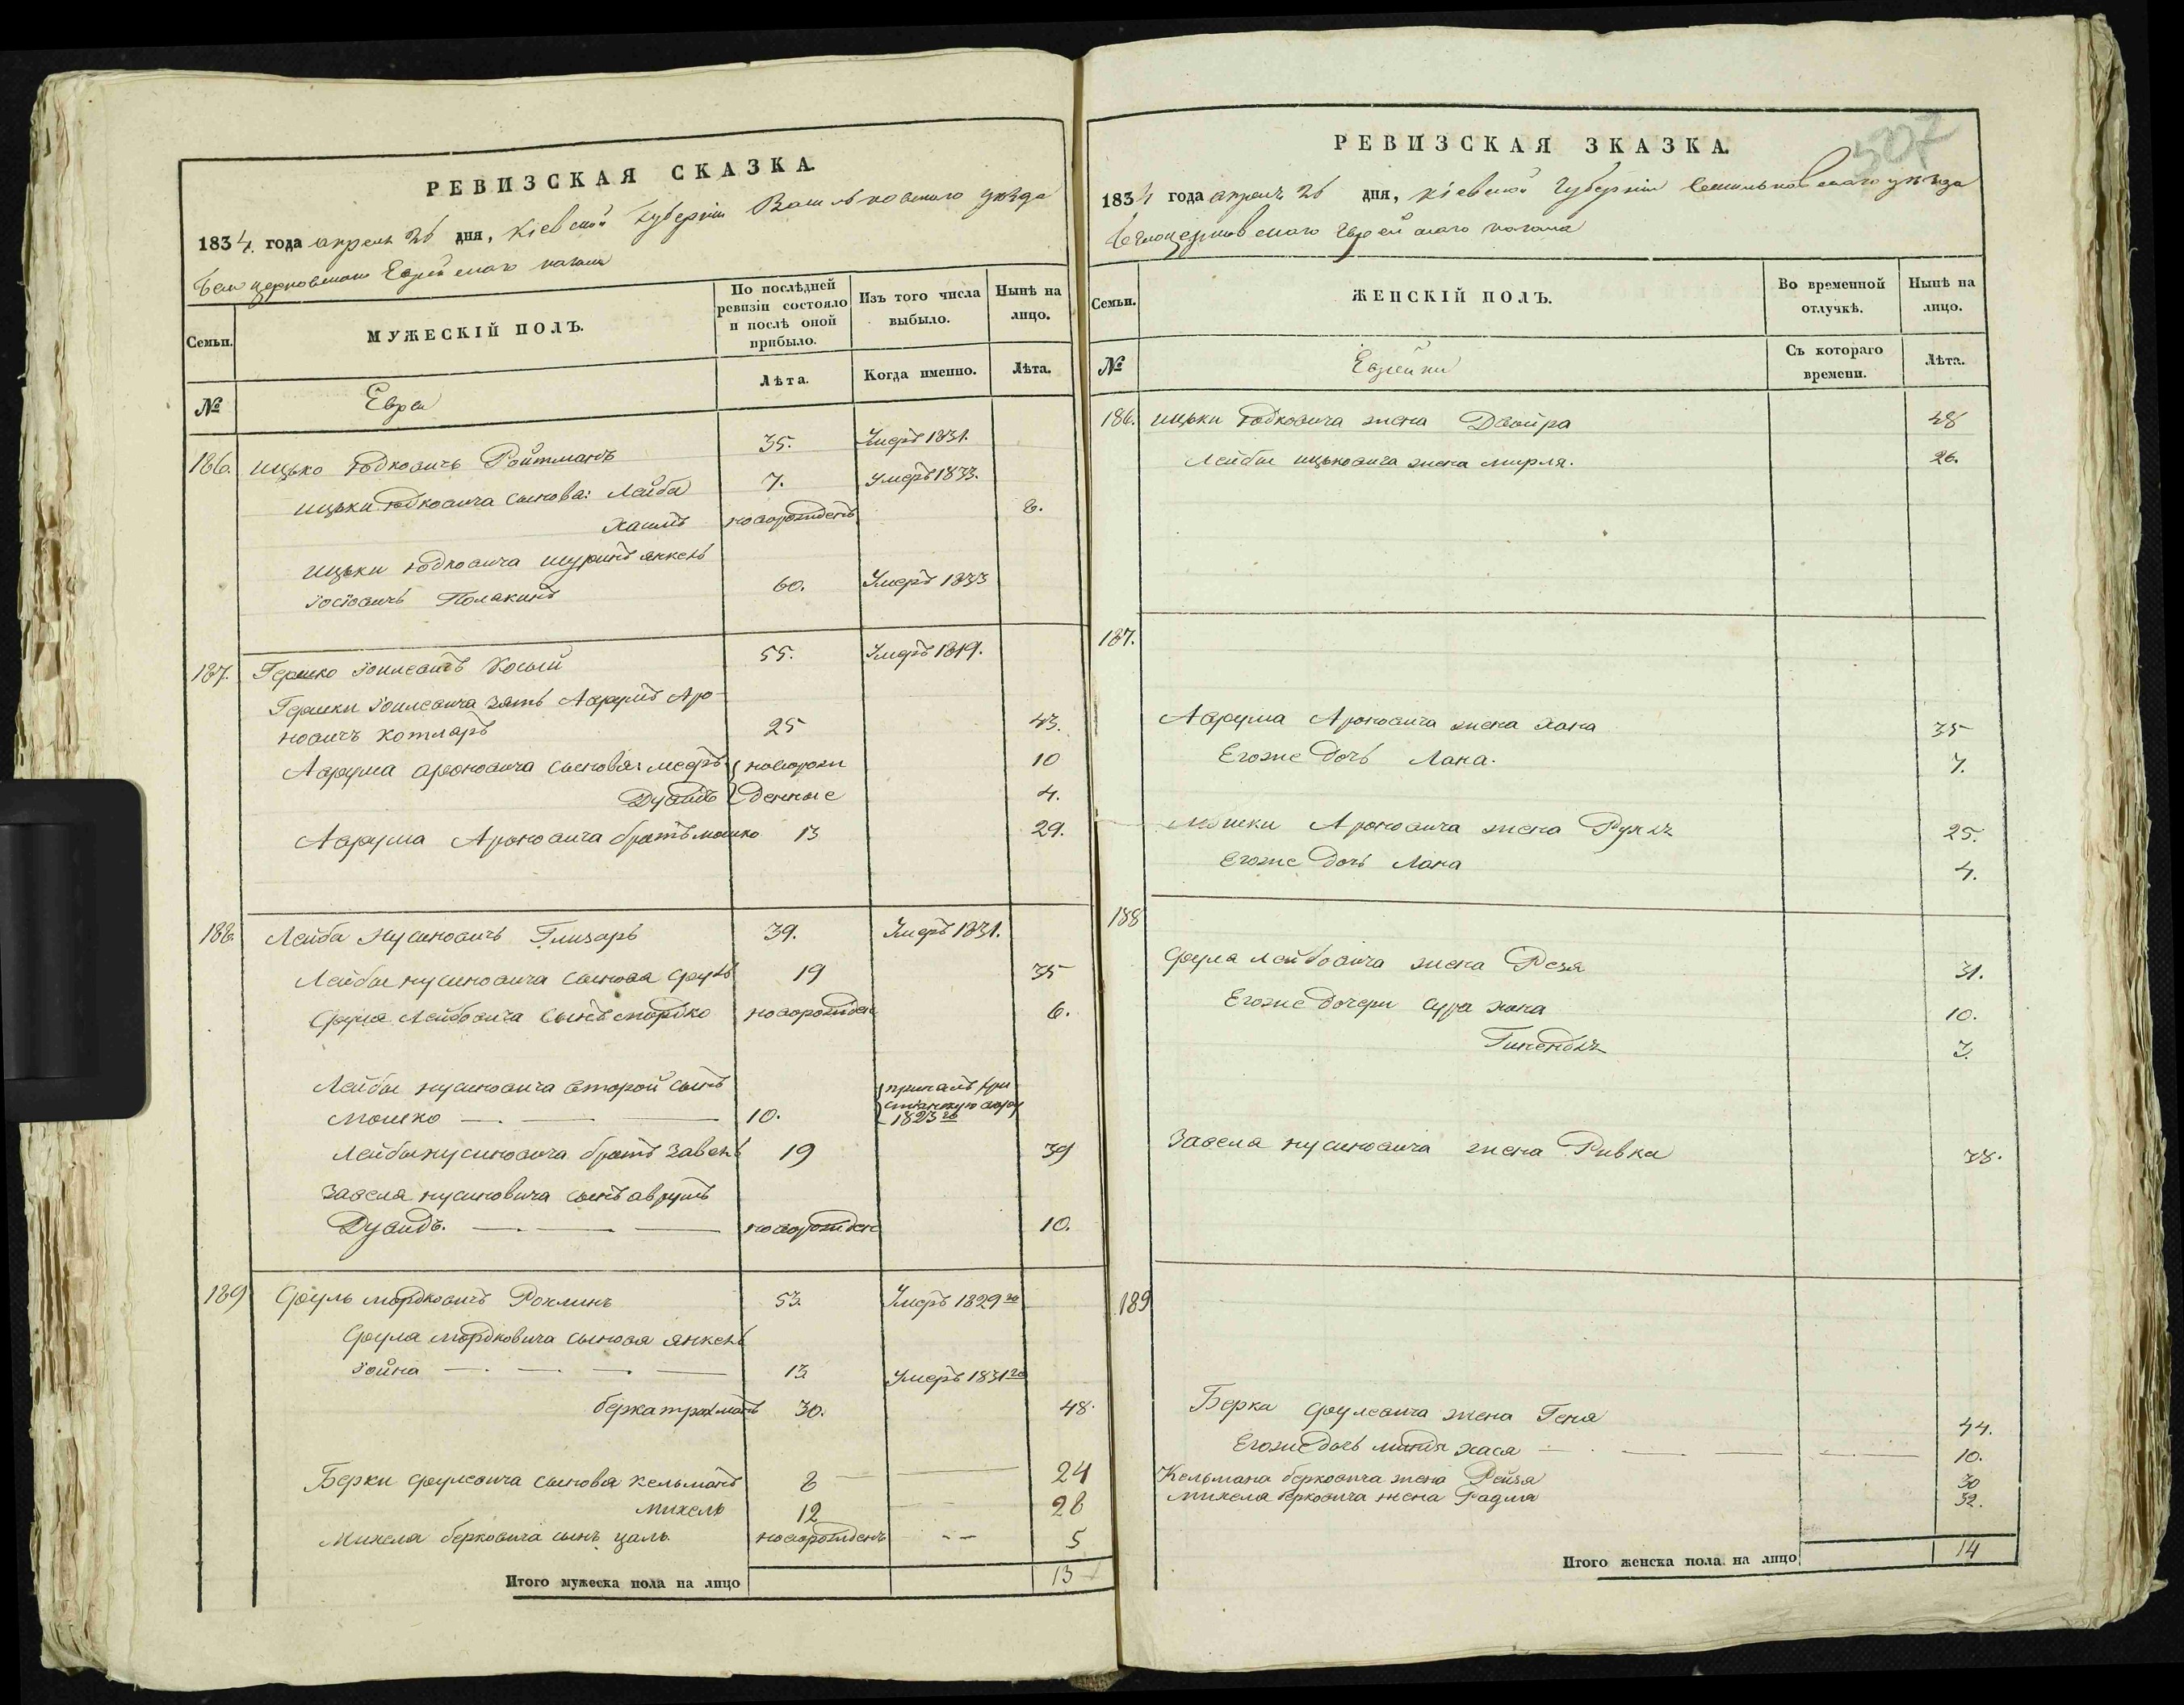 РЕВИЗСКАЯ СКАЗКА.
1834. года апреля 26 дня, Кіевской Губерніи Васильковскаго уѣзда
Белоцерковскаго Еврейскаго кагала
Семьи.
МУЖЕСКІЙ ПОЛЪ.
По послѣдней ревизіи состояло и послѣ оной прибыло.
Изъ того числа выбыло.
Нынѣ на лицо.
№
Евреи
Лѣта.
Когда именно.
Лѣта.
186. Ицько Юдковичъ Ройтманъ 35. Умеръ 1831.
Ицьки Юдковича сыновья: Лейба 7. Умеръ 1833.
Хаимъ новорожденъ 8.
Ицьки Юдковича шуринъ Янкель
Іосіовичъ Полакинъ 60. Умеръ 1833
187. Гершко Іоилевичъ Косый 55. Умеръ 1819.
Гершки Іоилевича зять Аврумъ Аро-
новичъ Котляръ 25 43.
Аврума Ароновича сыновья: Мееръ новорож 10
Дувидъ денные 4.
Аврума Ароновича братъ Мошко 13 29.
188. Лейба Нусиновичъ Глизаръ 39. Умеръ 1831.
Лейбы Нусиновича сыновья Сруль 19 35
Срула Лейбовича сынъ Мордко новорожден 6.
Лейбы Нусиновича второй сынъ
Мошко 10. принялъ хри
стіанскую веру
1823 го
Лейбы Нусиновича братъ Завель 19 39
Завеля Нусиновича сынъ Аврумъ
Дувидъ. новорожден 10.
189 Сруль Мордковичъ Рохлинъ 53. Умеръ 1829 го
Срула Мордковича сыновья Янкель
Іойна 13 Умеръ 1831 го
Берка 30. 48.
Берки Срулевича сыновья Кельманъ 8 24
Михель 12 28
Михеля Берковича сынъ Цаль новорожденъ 5
Итого мужеска пола на лицо 13
РЕВИЗСКАЯ ЗКАЗКА.
307
1834 года апреля 26 дня, Кіевской Губерніи Васильковскаго уѣзда
Белоцерковскаго Еврейскаго кагала
Семьи.
ЖЕНСКІЙ ПОЛЪ.
Во временной отлучкѣ.
Нынѣ на лицо.
№
Еврейки
Съ котораго времени.
Лѣта.
186. Ицьки Юдковича жена Двойра 48
Лейбы Ицьковича жена Мирля. 26.
187.
Аврума Ароновича жена Хана 35
Егоже дочь Лана. 7.
Мошки Ароновича жена Рухля 25.
Егоже дочь Лана 4.
188
Срула Лейбовича жена Рези 31.
Егоже дочери Сура Хана 10.
Гинендля 3.
Завеля Нусиновича жена Ривка 38.
189
Берка Срулевича жена Геня 44.
Егоже дочь Миндя Хася 10.
Кельмана Берковича жена Рейзя 30
Михеля Берковича жена Фадма 32.
Итого женска пола на лицо 14